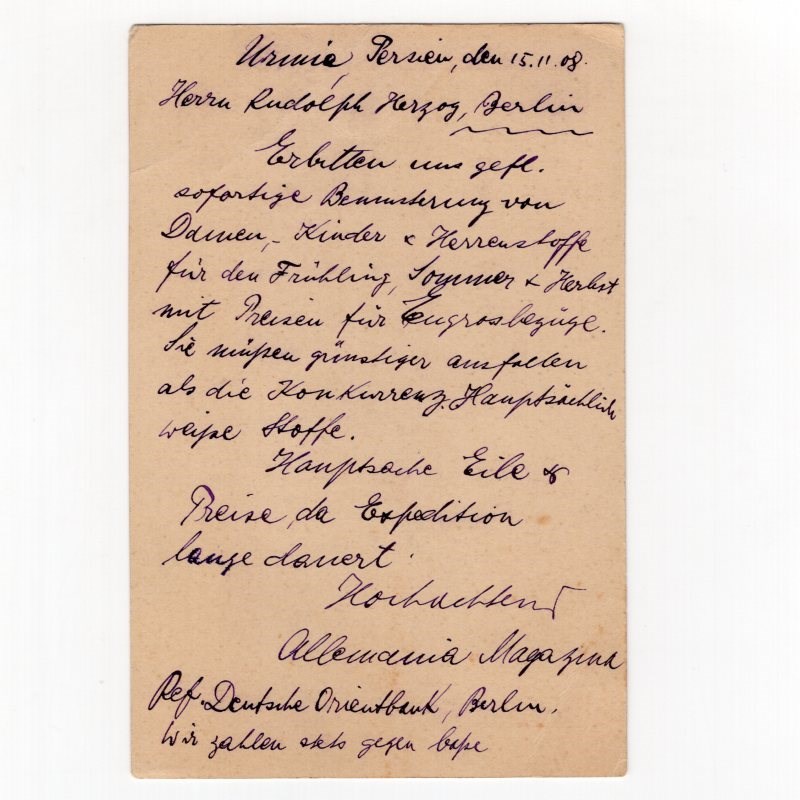 Urmia, Persien, den 15.11.08.
Herrn Rudolph Herzog, Berlin
Erbitten uns gefl.
sofortige Bemusterung von
Damen,- Kinder & Herrenstoffe
für den Frühling, Sommer & Herbst
mit Preisen für Engrosbezüge.
Sie müßen günstiger ausfallen
als die Konkurrenz. Hauptsächlich
weiße Stoffe.
Hauptsache Eile &
Preise, da Expedition
lange dauert.
Hochachtend
Allemania Magazina
Ref. Deutsche Orientbank, Berlin.
Wir zahlen stets gegen